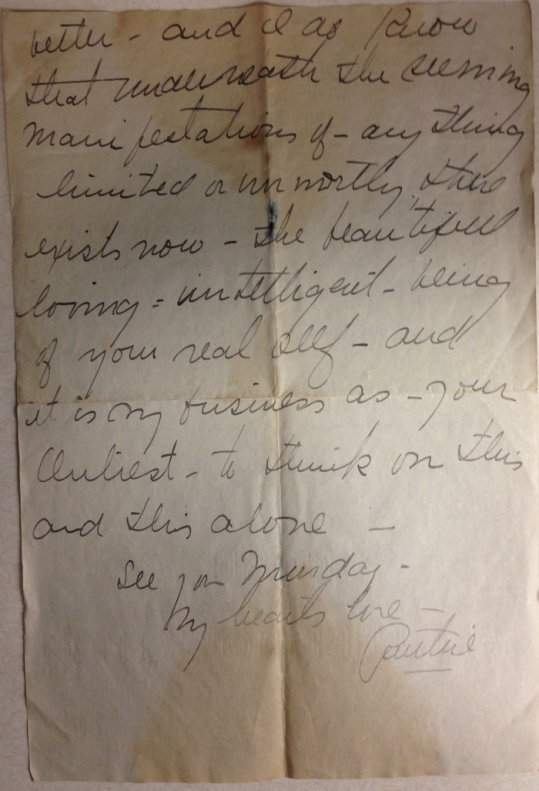 better - and I do know
that underneath the seeming
manifestations of - any thing
limited or unworthy, there
exists now - the beautiful
loving - intelligent - being
of your real self - and
it is my business as - your
- to think on this
and this alone -
See you Monday -
My hearts love -